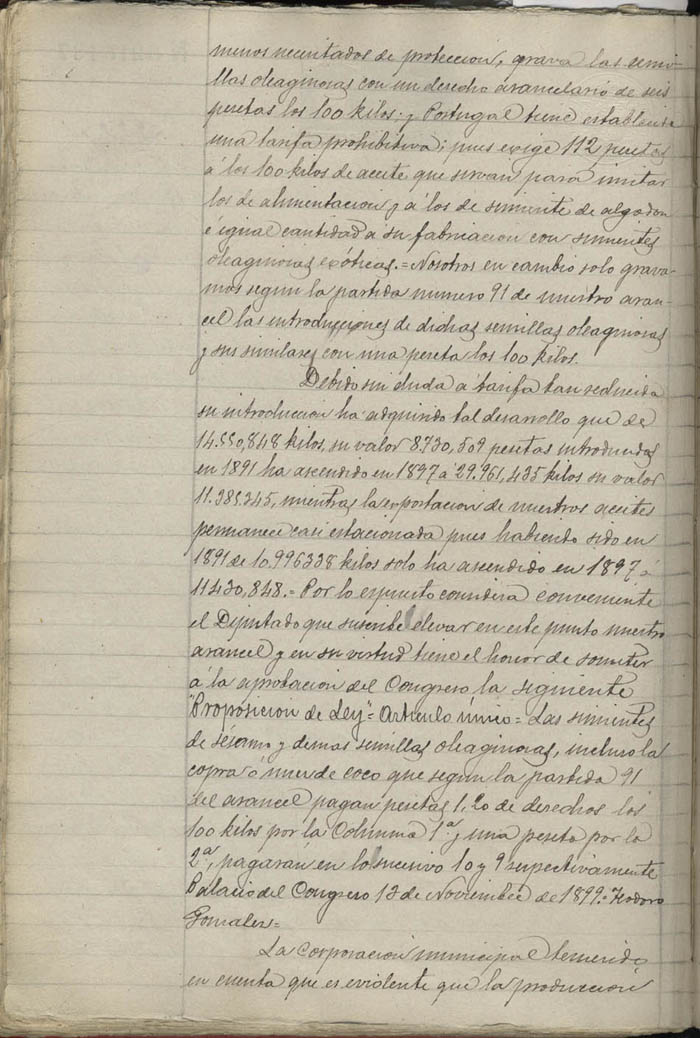 menos necesitados de proteccion, grava las semi-
llas oleaginosas con un derecho arancelario de seis
pesetas los 100 kilos; y Portugal tiene establecida
una tarifa prohibitiva; pues exige 112 pesetas
á los 100 kilos de aceite que sirvan para imitar
los de alimentacion y á los de simiente de algodon
é igual cantidad a su fabricacion con simientes
oleaginosas exóticas.= Nosotros en cambio solo grava-
mos segun la partida numero 91 de nuestro aran-
cel las introducciones de dichas semillas oleaginosas
y sus similares con una peseta los 100 kilos.
Debido sin duda a tarifa tan reducida
su introduccion ha adquirido tal desarrollo que de
14.550,848 kilos, su valor 8.730,509 pesetas introducidas
en 1891 ha ascendido en 1897 a 29.961,435 kilos su valor
11.385.345, mientras la exportacion de nuestros aceites
permanece casi estacionada pues habiendo sido en
1891 de 10.996338 kilos solo ha ascendido en 1897 á
11430,848.= Por lo expuesto considera conveniente
el Diputado que suscribe elevar en este punto nuestro
arancel y en su virtud tiene el honor de someter
á la aprobacion del Congreso la siguiente
"Proposicion de Ley"= Artículo único= Las simientes
de sésamo y demas semillas oleaginosas, incluso la
copra ó nuez de coco que segun la partida 91
del arancel pagan pesetas 1,20 de derechos los
100 kilos por la Columna 1ª, y una peseta por la
2ª, pagarán en lo sucesivo 10 y 9 respectivamente
Palacio del Congreso 13 de Noviembre de 1899= Teodoro
Gonzalez=
La Corporacion municipal teniendo
en cuenta que es evidente que la produccion